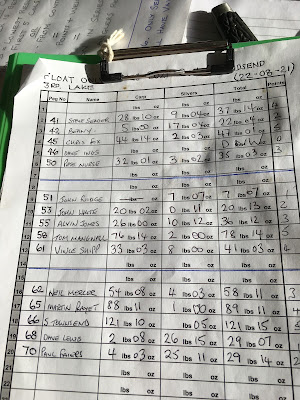 FLOAT O DSEND
3RD LAKE (22-08-21)
Peg No Name Carp Silvers Total Points
lbs oz lbs oz lbs oz
41 STEVE 28 lbs 10 oz 9 lbs 04 oz 37 lbs 14 oz 4
42 5 lbs 00 oz 17 lbs 04 oz 22 lbs 04 oz 2
45 CHRIS FOX 44 lbs 14 oz 2 lbs 03 oz 47 lbs 01 oz 5
DAVE
50 PETE NURSE 32 lbs 01 oz 3 lbs 02 oz 35 lbs 03 oz 3
lbs oz lbs oz lbs oz
lbs oz lbs oz lbs oz
51 JOHN FUDGE — lbs — oz 7 lbs 07 oz 7 lbs 07 oz 1
53 JOHN WHITE 20 lbs 02 oz 0 lbs 11 oz 20 lbs 13 oz 2
55 ALVIN JONES 26 lbs 00 oz 10 lbs 12 oz 36 lbs 12 oz 3
56 TOM MANGNALL 76 lbs 14 oz 2 lbs 00 oz 78 lbs 14 oz 5
61 VINCE SHIPP 33 lbs 03 oz 8 lbs 00 oz 41 lbs 03 oz 4
lbs oz lbs oz lbs oz
lbs oz lbs oz lbs oz
62 NEIL MERCER 54 lbs 08 oz 4 lbs 03 oz 58 lbs 11 oz
65 MARTIN 88 lbs 11 oz 1 lbs 00 oz 89 lbs 11 oz
66 S TOWNSEND 121 lbs 10 oz lbs 05 oz 121 lbs 15 oz
68 DAVE LEWIS 2 lbs 08 oz 26 lbs 15 oz 29 lbs 07 oz
70 PAUL FAIRES 4 lbs 03 oz 25 lbs 11 oz 29 lbs 14 oz
lbs oz lbs oz lbs oz
lbs oz lbs oz lbs oz